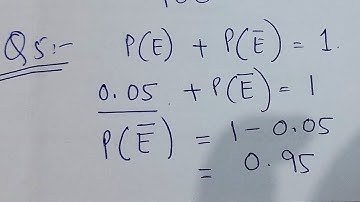 Q5:- P(E) + P(E̅) = 1.
0.05 + P(E̅) = 1
P(E̅) = 1 - 0.05
= 0.95